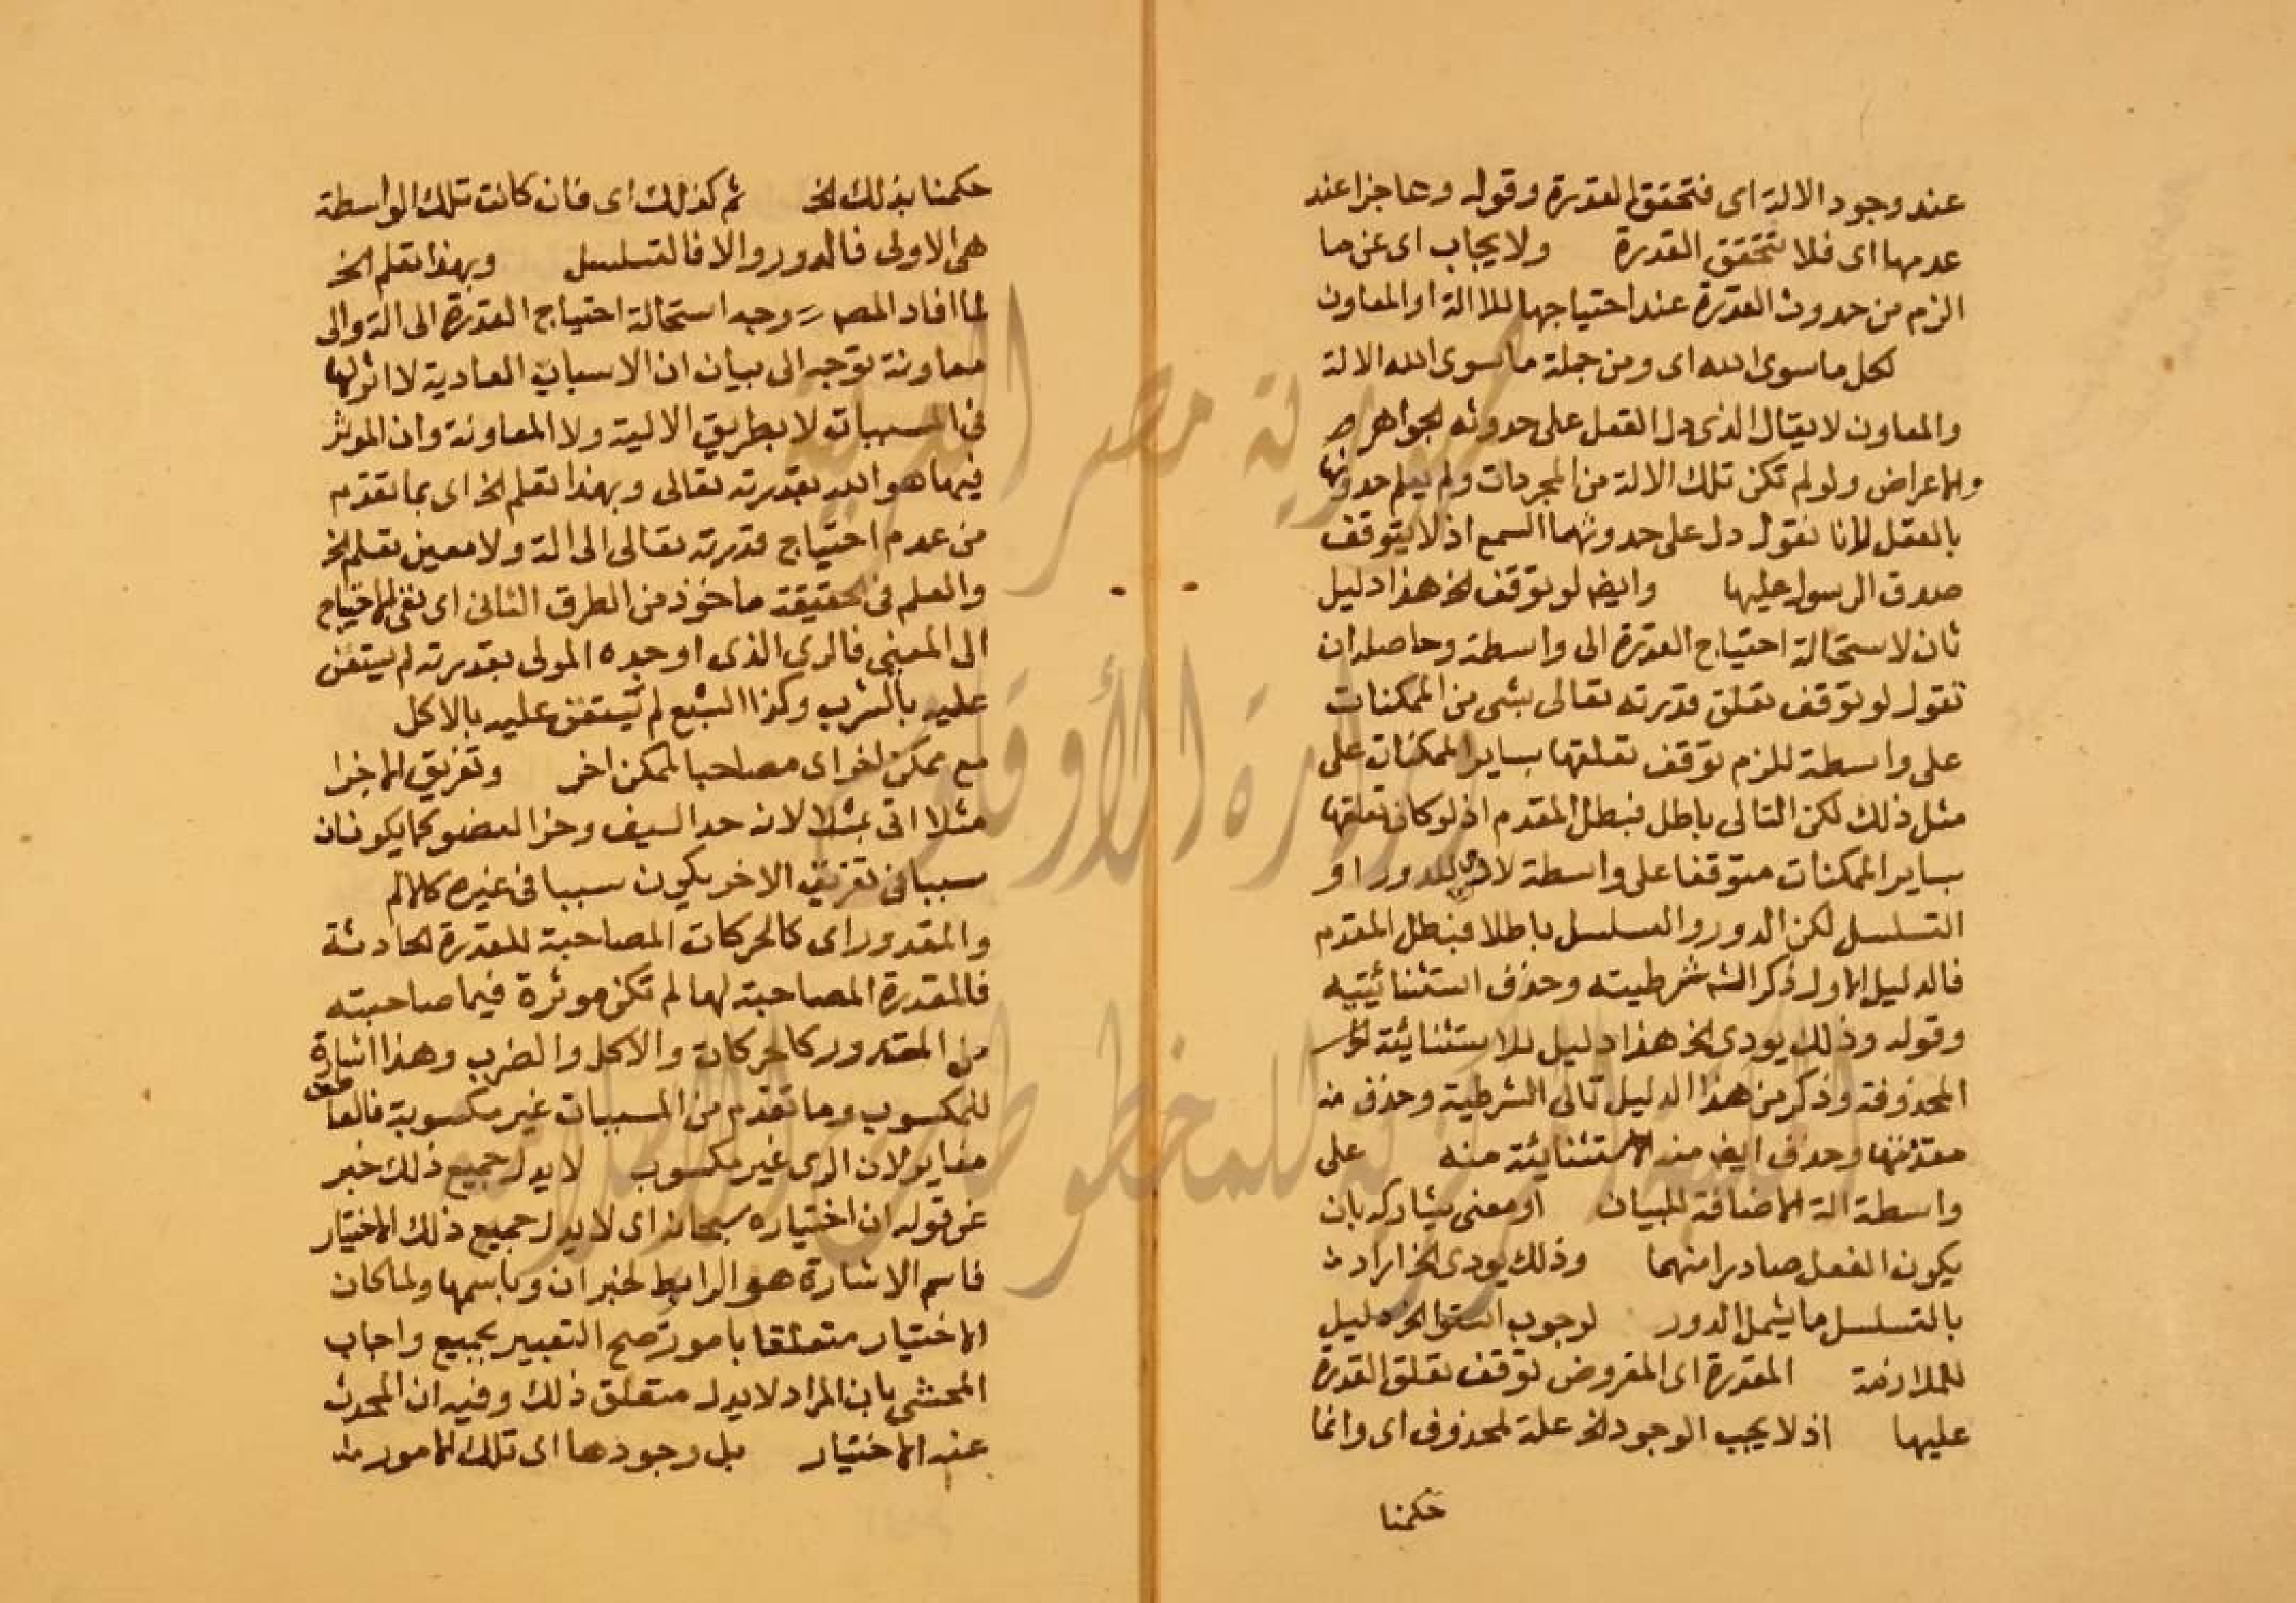 عند وجود الالة اى فتحقق القدرة وقوله وعاجزا عند
عدمها اى فلا تتحقق القدرة ولا يجاب اى عن ما
الزم من حدوث القدرة عند احتياجها للالة او المعاون
لكل ما سوى الله اى ومن جملة ما سوى الله الالة
والمعاون لا يقال الذى دل العقل على حدوثه الجواهر
والاعراض ولو لم تكن تلك الالة من المجردات ولم يعلم حدوثها
بالعقل لانا نقول دل على حدوثهما السمع اذ لا يتوقف
صدق الرسول عليها وايض لو توقف الخ هذا دليل
ثان لاستحالة احتياج القدرة الى واسطة وحاصله ان
تقول لو توقف تعلق قدرته تعالى بشى من الممكنات
على واسطة للزم توقف تعلقها بساير الممكنات على
مثل ذلك لكن التالى باطل فبطل المقدم اذ لو كان تعلقها
بساير الممكنات متوقفا على واسطة لادى للدور او
التسلسل لكن الدور والتسلسل باطلا فبطل المقدم
فالدليل الاول ذكر الش شرطيته وحذف استثنائيتيه
وقوله وذلك يودى الخ هذا دليل للاستثنايئة
المحذوفة وذكر من هذا الدليل تالى الشرطية وحذف منه
مقدمها وحذف ايض منه الاستثنايئة منه على
واسطة الة الاضافة للبيان او معنى يشاركه بان
يكون الفعل صادرا منهما وذلك يودى الخ اراد
بالتسلسل ما يشمل الدور لوجوب الخ دليل
للملازمة المقدرة اى المفروض توقف تعلق القدرة
عليها اذ لا يجب الوجود الخ علة لمحذوف اى وانما
حكمنا
حكمنا بذلك الخ ثم كذلك اى فان كانت تلك الواسطة
هى الاولى فالدور والا فالتسلسل وبهذا تعلم الخ
لما افاد المص وجه استحالة احتياج القدرة الى الة والى
معاونة توجه الى بيان ان الاسباب العادية لا اثر لها
فى المسببات لا بطريق الالية ولا المعاونة وان الموثر
فيها هو الله بقدرته تعالى وبهذا تعلم الخ اى بما تقدم
من عدم احتياج قدرته تعالى الى الة ولا معين تعلم الخ
والعلم فى الحقيقة ماخوذ من الطرق الثانى اى نفى الاحتياج
الى المعين فالرى الذى اوجده المولى بقدرته لم يستعن
عليه بالشرب وكذا الشبع لم يستعن عليه بالاكل
مع ممكن اخر اى مصاحبا لممكن اخر وتفريق الاجزا
مثلا اتى بمثلا لان حد السيف وحز العضو كما يكونان
سببا فى تفريق الاخر يكون سببا فى غيره كالالم
والمقدور اى كالحركات المصاحبة للقدرة الحادثة
فالقدرة المصاحبة لها لم تكن موثرة فيما صاحبته
من المقدور كالحركات والاكل والضرب وهذا اشارة
للمكسوب وما تقدم من المسببات غير مكسوبة فالعطف
مغاير لان الرى غير مكسوب لا يدل جميع ذلك خبر
عن قوله ان اختياره سبحانه اى لا يدل جميع ذلك الاختيار
فاسم الاشارة هو الرابط لخبر ان وباسمها ولما كان
الاختيار متعلقا بامور صح التعبير بجميع واجاب
المحشى بان المراد لا يدل متعلق ذلك وفيه ان المحدث
عنه الاختيار بل وجودها اى تلك الامور